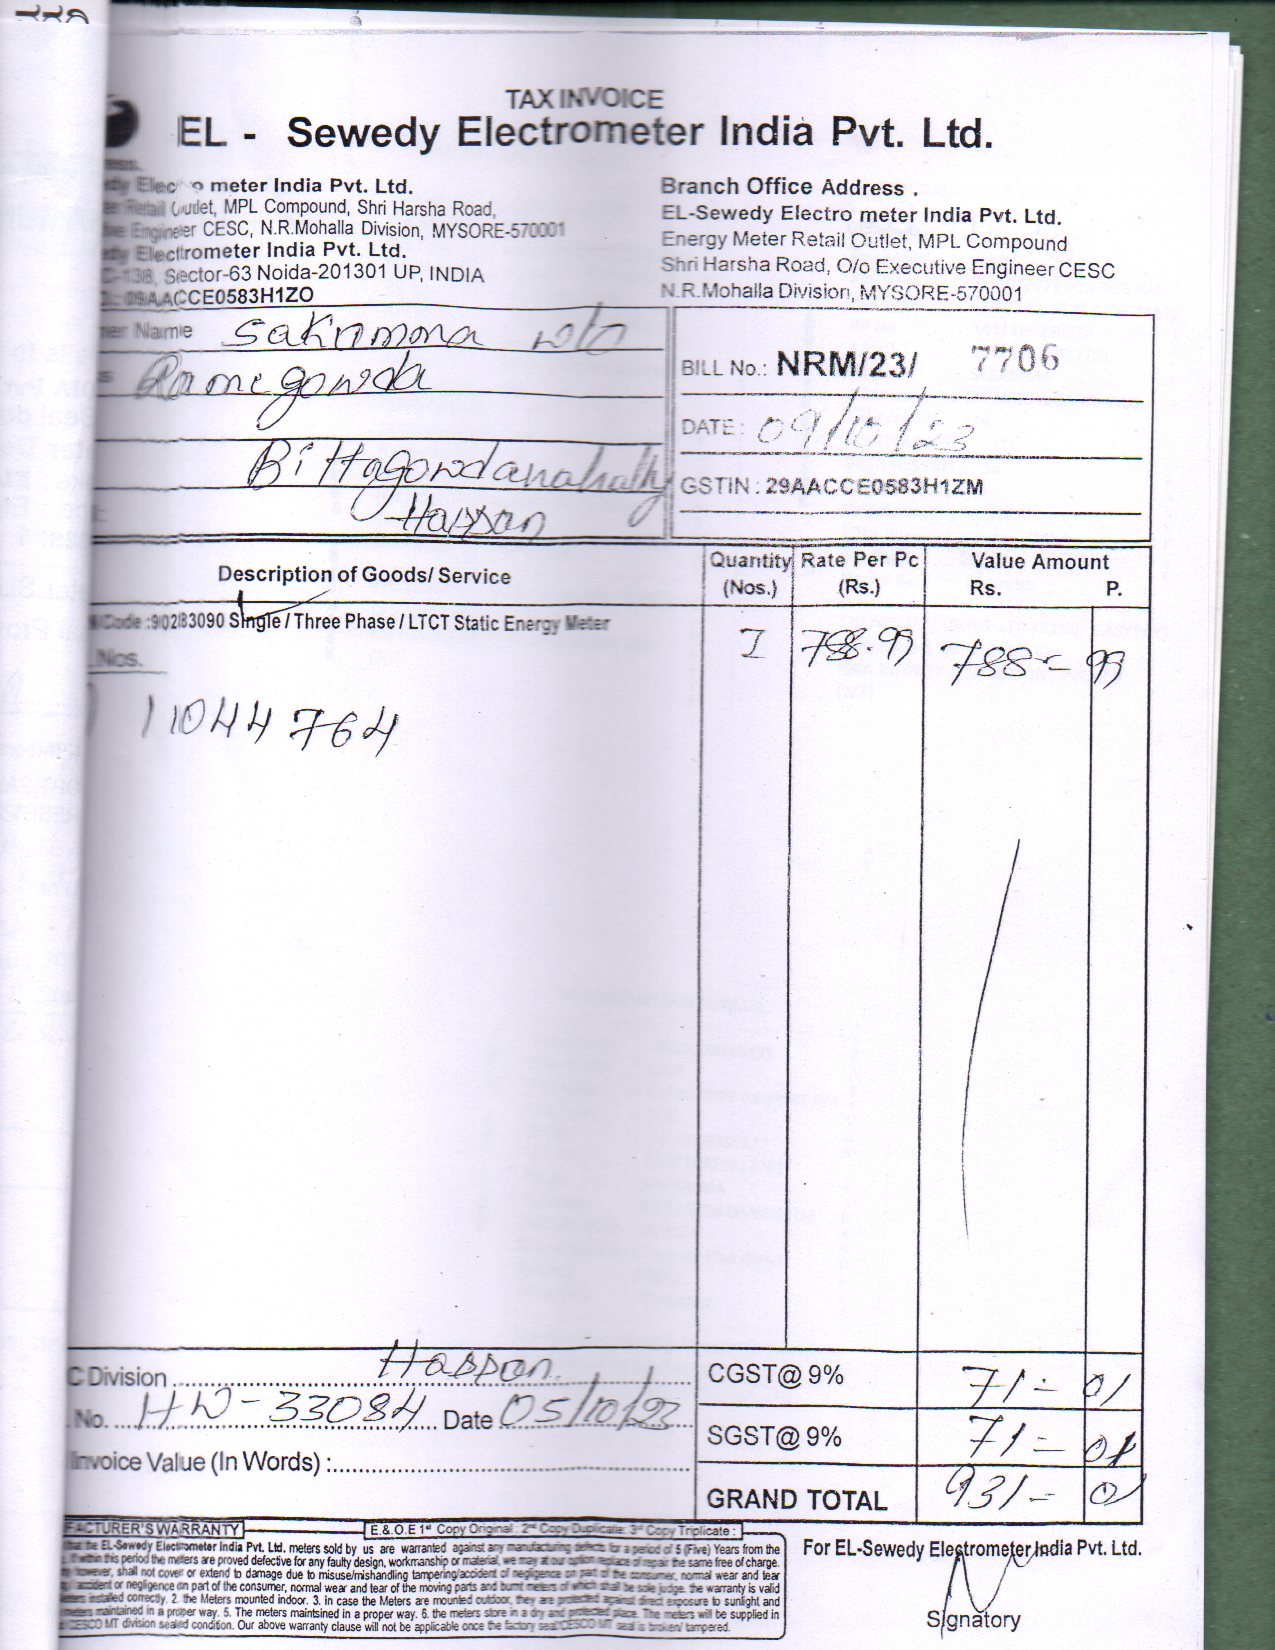 TAX INVOICE
EL - Sewedy Electrometer India Pvt. Ltd.
meter India Pvt. Ltd.
Outlet, MPL Compound, Shri Harsha Road,
Engineer CESC, N.R.Mohalla Division, MYSORE-570001
Electrometer India Pvt. Ltd.
Sector-63 Noida-201301 UP, INDIA
09AACCE0583H1ZO
Branch Office Address .
EL-Sewedy Electro meter India Pvt. Ltd.
Energy Meter Retail Outlet, MPL Compound
Shri Harsha Road, O/o Executive Engineer CESC
N.R.Mohalla Division, MYSORE-570001
Name Sakamma w/o
Ramegowda
Bittagowdanahally
Hassan
BILL No.: NRM/23/ 7706
DATE : 09/10/23
GSTIN : 29AACCE0583H1ZM
Description of Goods/ Service Quantity (Nos.) Rate Per Pc (Rs.) Value Amount Rs. P.
Code :90283090 Single / Three Phase / LTCT Static Energy Meter 1 788.99 788=99
Nos.
11044764
C Division Hassan CGST@ 9% 71=01
No. HW-33084 Date 05/10/23 SGST@ 9% 71=01
Invoice Value (In Words) :
GRAND TOTAL 931=01
FACTURER'S WARRANTY E.& O.E 1st Copy Original : 2nd Copy Duplicate: 3rd Copy Triplicate :
the EL-Sewedy Electrometer India Pvt. Ltd. meters sold by us are warranted against any manufacturing defects for a period of 5 (Five) Years from the
within this period the meters are proved defective for any faulty design, workmanship or material, we may at our option replace or repair the same free of charge.
however, shall not cover or extend to damage due to misuse/mishandling tampering/accident of negligence on part of the consumer, normal wear and tear
accident or negligence on part of the consumer, normal wear and tear of the moving parts and burnt meters of which shall be sole judge. the warranty is valid
installed correctly. 2. the Meters mounted indoor. 3. in case the Meters are mounted outdoor, they are protected against direct exposure to sunlight and
maintained in a proper way. 5. The meters maintsined in a proper way. 6. the meters store in a dry and protected place. The meters will be supplied in
CESCO MT division sealed condition. Our above warranty clause will not be applicable once the factory seal/CESCO MT seal is broken/ tampered.
For EL-Sewedy Electrometer India Pvt. Ltd.
Signatory